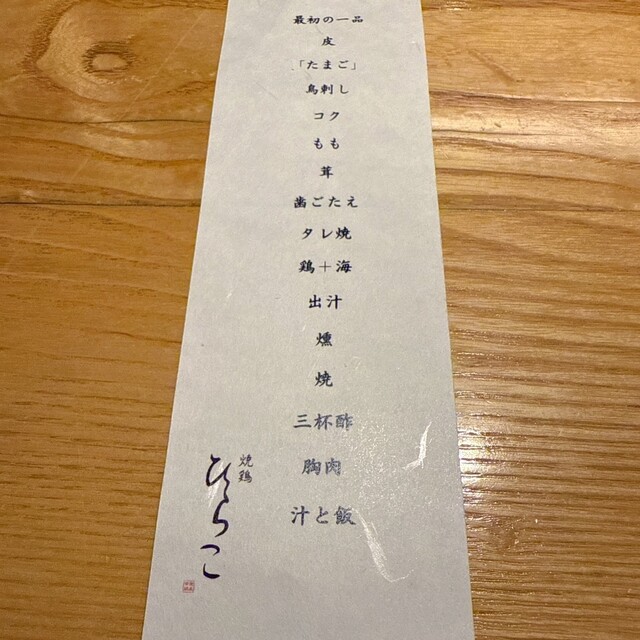 最初の一品
皮
「たまご」
鳥刺し
コク
もも
茸
歯ごたえ
タレ焼
鶏＋海
出汁
燻
焼
三杯酢
胸肉
汁と飯
焼鶏
ひらこ